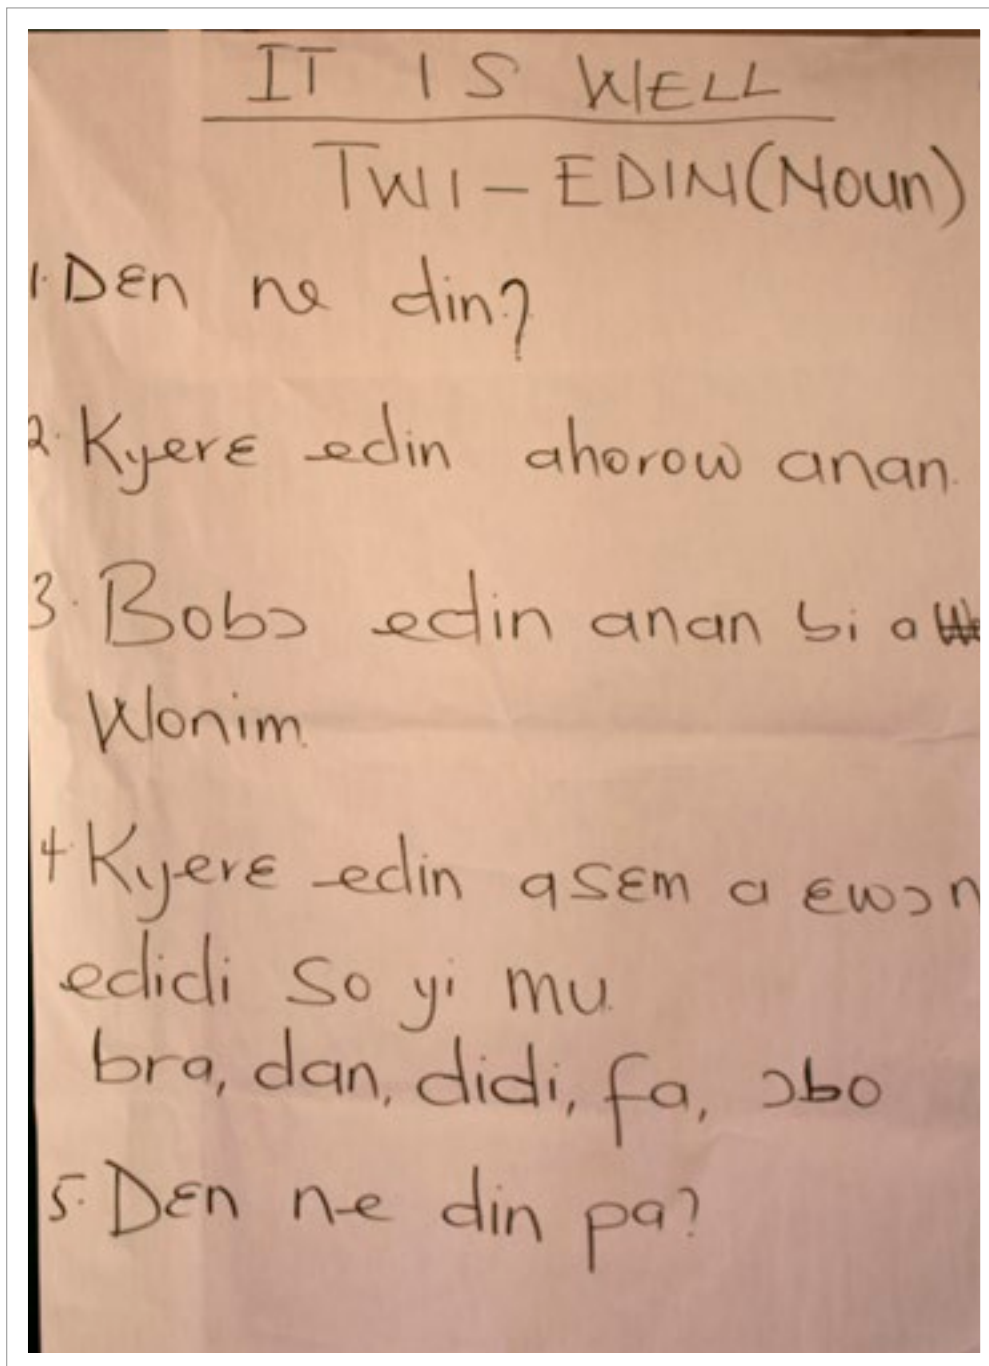 IT IS WELL
TWI - EDIN (Noun)
1. Dɛn ne din?
2. Kyerɛ edin ahorow anan.
3. Bobɔ edin anan bi a
Wonim.
4. Kyerɛ edin asɛm a ɛwɔ n
edidi so yi mu.
bra, dan, didi, fa, ɔbo
5. Dɛn ne din pa?